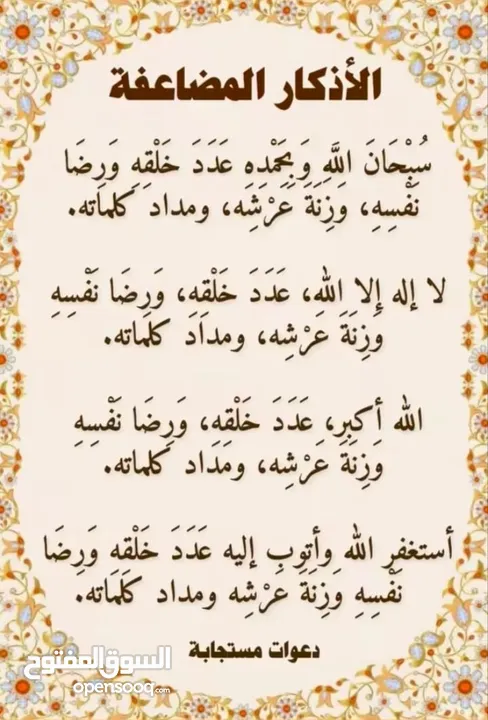 الأذكار المضاعفة
سُبْحَانَ اللَّهِ وَبِحَمْدِهِ عَدَدَ خَلْقِهِ وَرِضَا
نَفْسِهِ، وَزِنَةَ عَرْشِه، ومداد كلماته.
لا إله إلا الله، عَدَدَ خَلْقِهِ، وَرِضَا نَفْسِهِ
وَزِنَةَ عَرْشِه، ومداد كلماته.
الله أكبر، عَدَدَ خَلْقِهِ، وَرِضَا نَفْسِهِ
وَزِنَةَ عَرْشِه، ومداد كلماته.
أستغفر الله وأتوب إليه عَدَدَ خَلْقِهِ وَرِضَا
نَفْسِهِ وَزِنَةَ عَرْشِه ومداد كلماته.
دعوات مستجابة
السوق المفتوح
opensooq.com